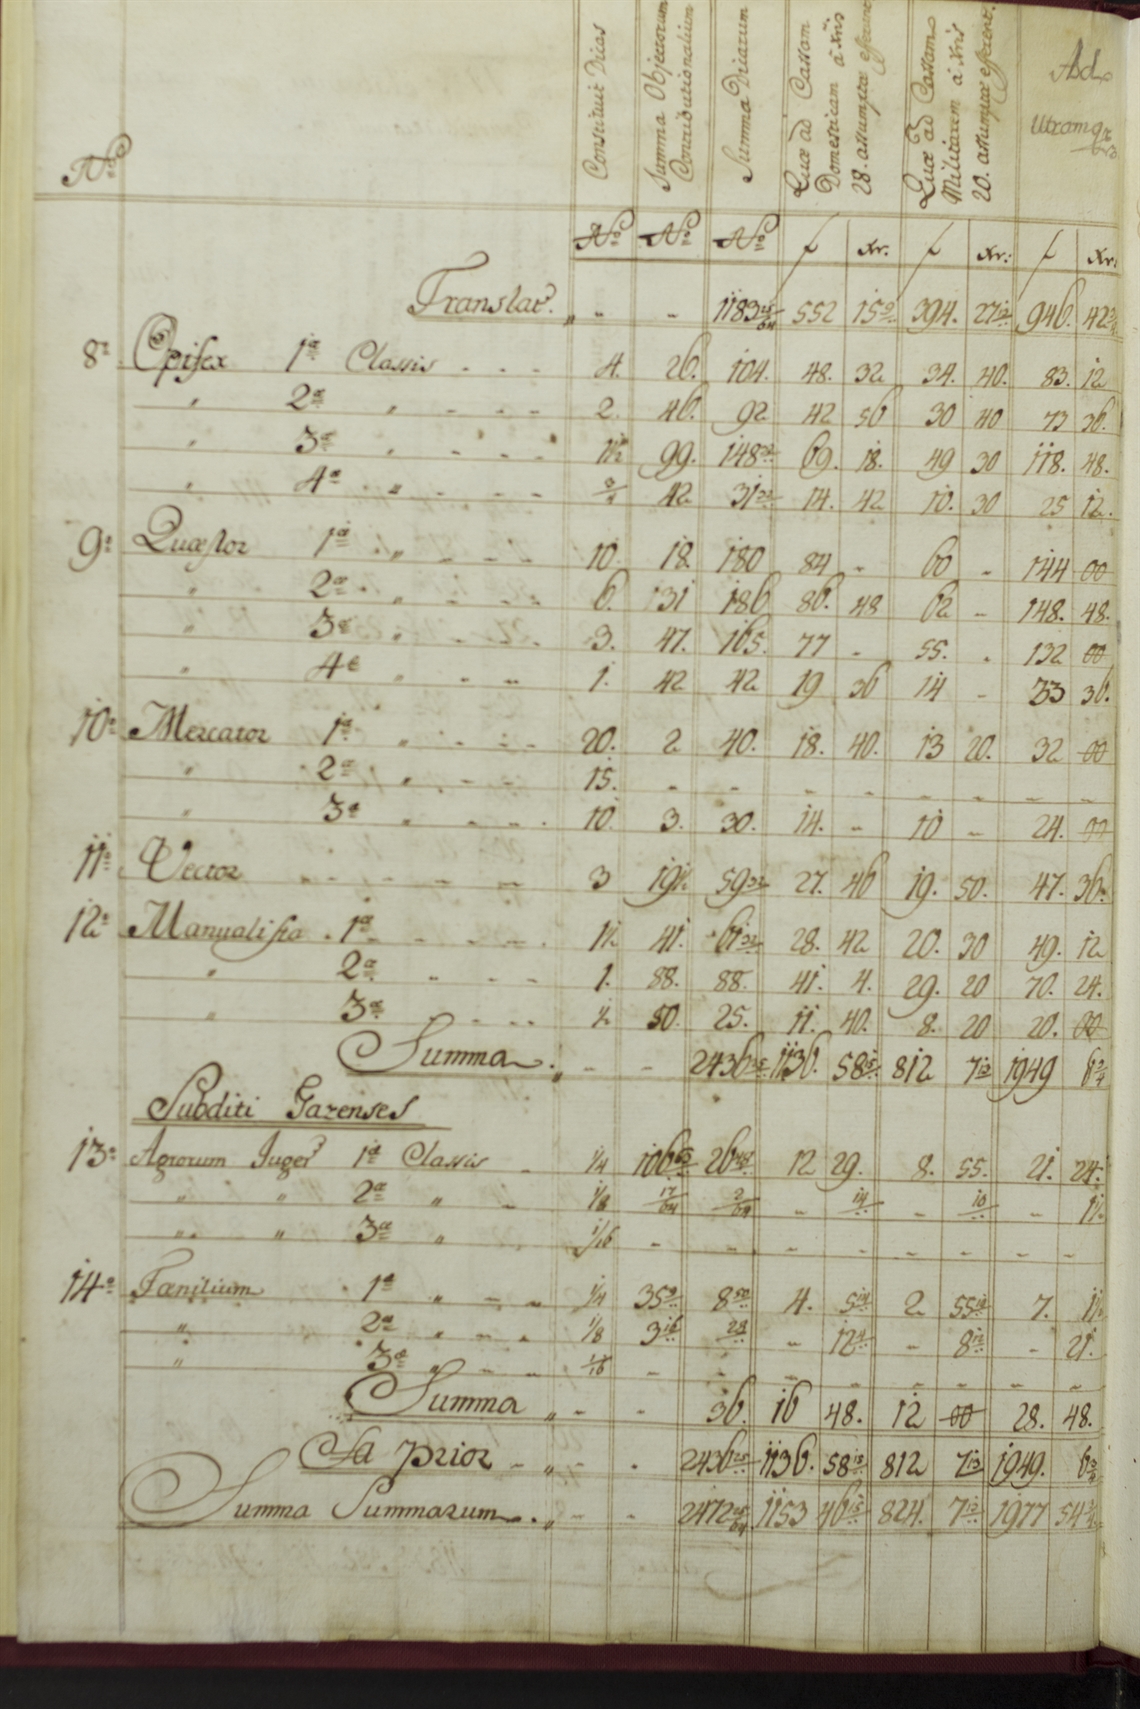 No
Constituit Dicas
Summa Objectorum Contributionalium
Summa Dicarum
Quæ ad Cassam Domesticam à Xris 28. assumptæ efferunt
Quæ ad Cassam Militarem à Xris 20. assumptæ efferunt.
Ad Utramqz
No No No f Xr. f Xr: f Xr:
Translat. „ - - 1183 552 15 394. 27 946. 42
8o Opifex 1a Classis - - - 4. 26. 104. 48. 32 34. 40. 83. 12
" 2a „ - - - 2 46. 92 42 56 30 40 73 36.
" 3a „ - - - 1½ 99. 148 69. 18. 49 30 118. 48.
" 4a „ - - - 42 31 14. 42 10. 30 25 12.
9o Quæstor 1a „ - - - 10. 18. 180 84 - 60 - 144 00
" 2a „ - - - 6. 131 186 86. 48 62 - 148. 48.
" 3a „ - - - 3. 47. 165. 77 - 55. - 132 00
" 4a „ - - - 1. 42 42 19 36 14 - 33 36.
10o Mercator 1a „ - - - 20. 2 40. 18. 40. 13 20. 32 00
" 2a „ - - - 15. - - - - - - - -
" 3a „ - - - 10. 3. 30. 14. - 10 - 24. 00
11o Vector - - - - 3 19½ 59 27. 46 19. 50. 47. 36.
12o Manualista 1a - - - 1½ 41. 61 28. 42 20. 30 49. 12
" 2a - - - 1. 88. 88. 41. 4. 29. 20 70. 24.
" 3a - - - ½ 50. 25. 11. 40. 8. 20 20. 00
Summa „ - - 2436 1136. 58 812 7 1949 6
Subditi Garenses
13o Agrorum Juger 1a Classis - ¼ 106 26 12 29. 8. 55. 21. 24.
„ „ 2a „ - ⅛ 17/64 2/64 - 14 - 10 - 1½
„ „ 3a „ - 1/16 - - - - - - - -
14o Fœnilium 1a „ - - ¼ 35 8 4. 5 2 55 7. 1½
„ 2a „ - - ⅛ 3 28 - 12 - 8 - 21.
„ 3a „ - - 1/16 - - - - - - - -
Summa „ - - 36. 16 48. 12 00 28. 48.
Sa prior - „ - - 2436 1136. 58 812 7 1949. 6
Summa Summarum „ - - 2472 1153 46 824. 7 1977 54